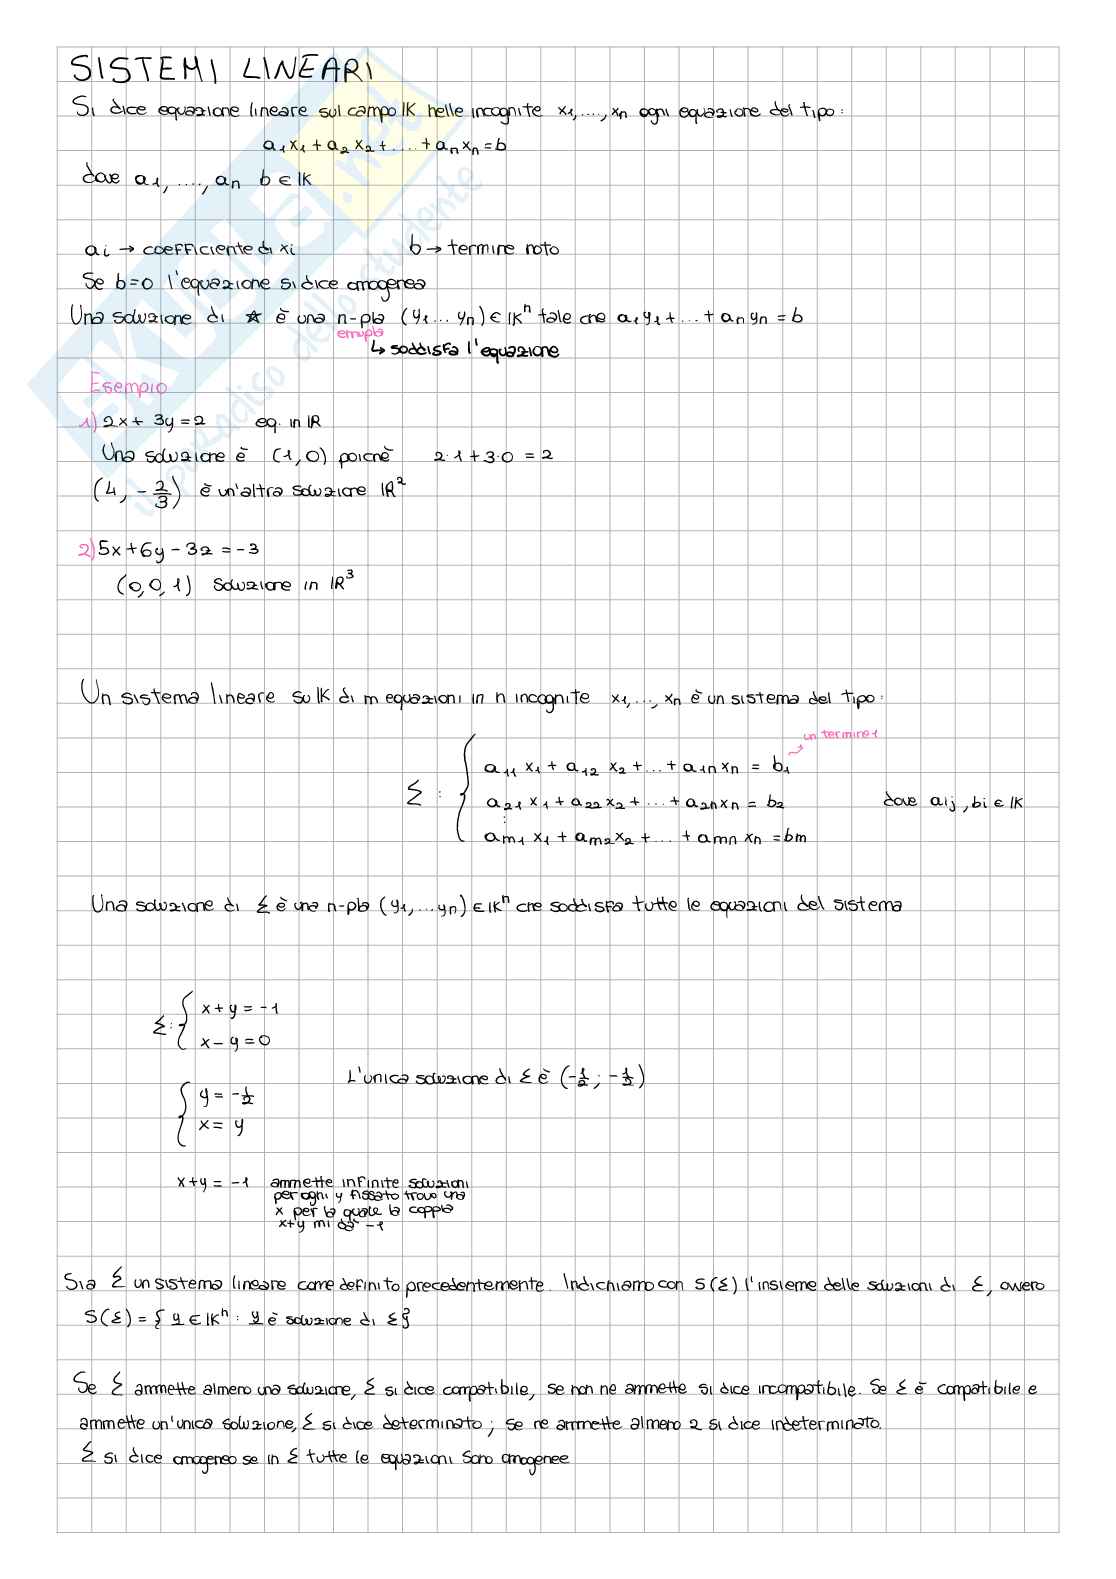 SISTEMI LINEARI
Si dice equazione lineare sul campo IK nelle incognite x1,....,xn ogni equazione del tipo:
a1x1 + a2 x2 + .... + an xn = b
dove a1, ...., an b ∈ IK
ai → coefficiente di xi b → termine noto
Se b=0 l'equazione si dice omogenea
Una soluzione di ★ è una n-pla (y1 ... yn) ∈ IKⁿ tale che a1y1 + ... + an yn = b
ennupla
↳ soddisfa l'equazione
Esempio
1) 2x + 3y = 2 eq. in IR
Una soluzione è (1,0) poichè 2·1 + 3·0 = 2
(4, -2/3) è un'altra soluzione IR²
2) 5x + 6y - 3z = -3
(0,0,1) soluzione in IR³
Un sistema lineare su IK di m equazioni in n incognite x1,...,xn è un sistema del tipo:
un termine 1
a11 x1 + a12 x2 + ... + a1n xn = b1
Σ : { a21 x1 + a22 x2 + ... + a2n xn = b2 dove aij, bi ∈ IK
⋮
am1 x1 + am2 x2 + ... + amn xn = bm
Una soluzione di Σ è una n-pla (y1,...yn) ∈ IKⁿ che soddisfa tutte le equazioni del sistema
Σ: { x + y = -1
x - y = 0
L'unica soluzione di Σ è (-1/2 ; -1/2)
{ y = -1/2
x = y
x+y = -1 ammette infinite soluzioni
per ogni y fissato trovo una
x per la quale la coppia
x+y mi da -1
Sia Σ un sistema lineare come definito precedentemente. Indichiamo con S(Σ) l'insieme delle soluzioni di Σ, ovvero
S(Σ) = { y ∈ IKⁿ : y è soluzione di Σ}
Se Σ ammette almeno una soluzione, Σ si dice compatibile, se non ne ammette si dice incompatibile. Se Σ è compatibile e
ammette un'unica soluzione, Σ si dice determinato ; se ne ammette almeno 2 si dice indeterminato.
Σ si dice omogeneo se in Σ tutte le equazioni sono omogenee
skuola.net
il paradiso dello studente